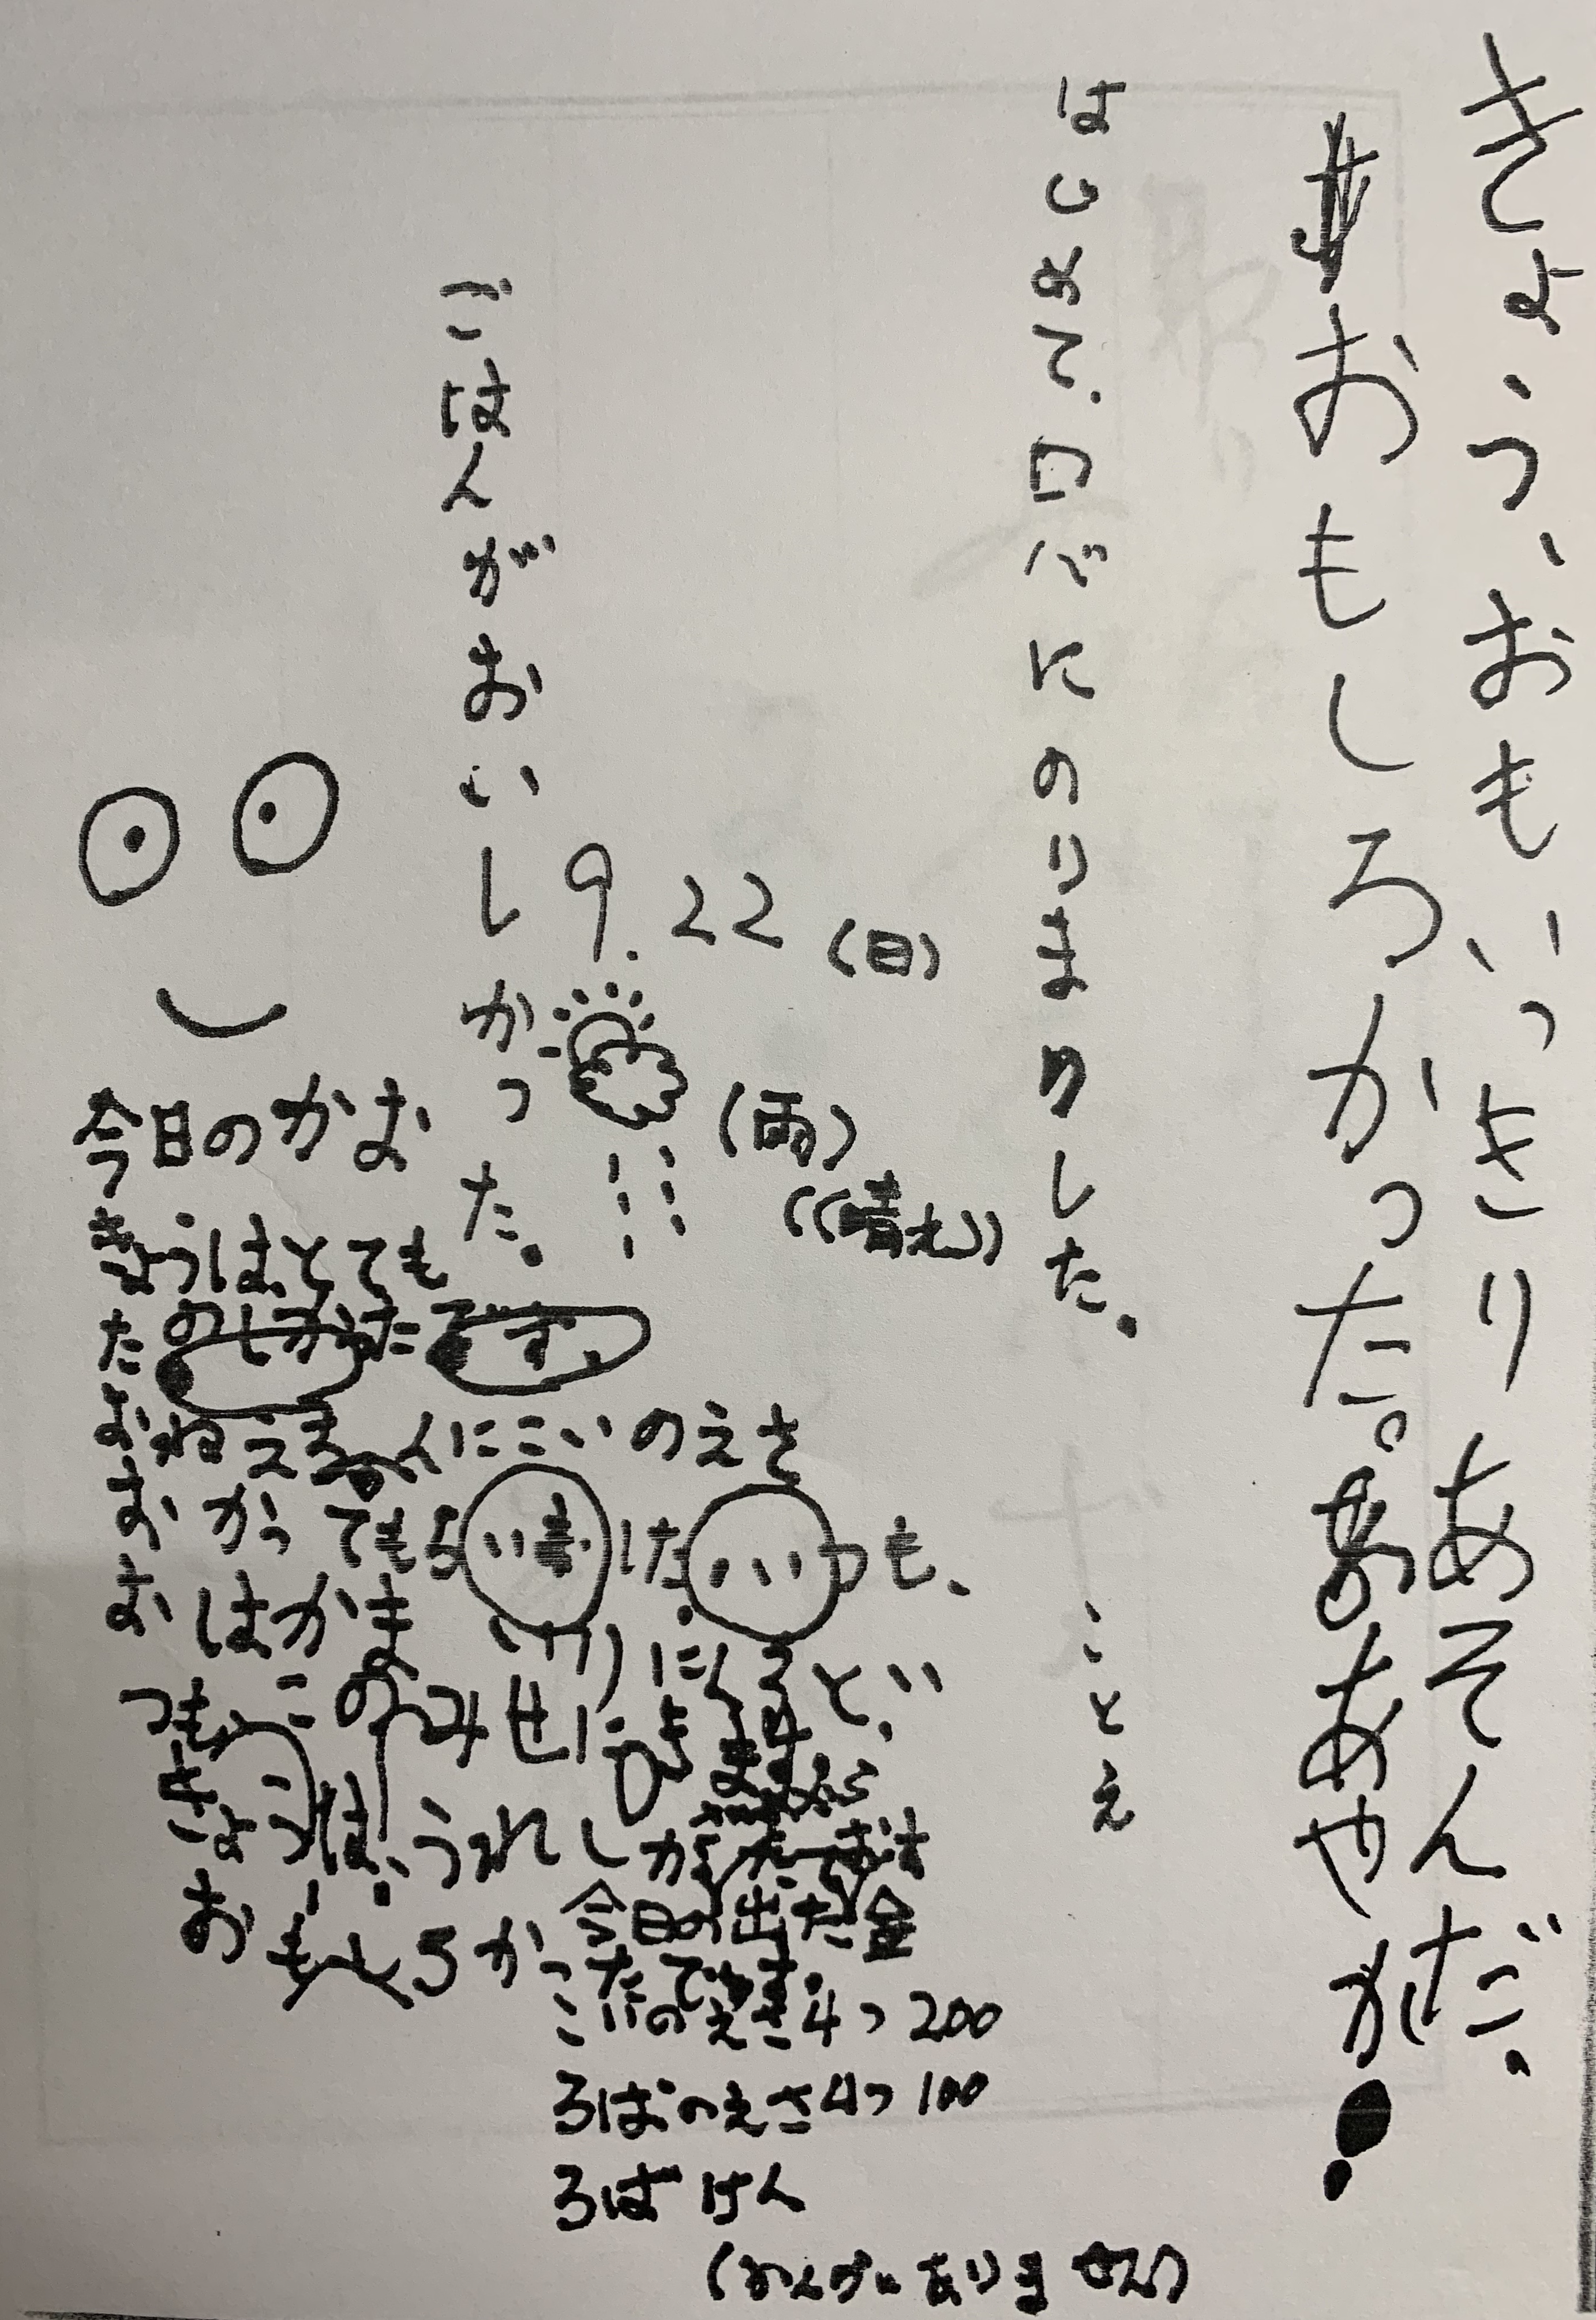 きょう、おもいっきりあそんだ。
おもしろかった。
あやか
はじめて、ロバにのりました。
ことえ
ごはんがおいしかった。
9.22(日)
(雨)
((晴れ))
今日のかお
きょうはとても
たのしかったです。
おねえちゃんにこいのえさ
おかってもらいました。いつも、
おはかまいりにくると、い
つもこのみせにきます
きょうは、うれしか
おもしろかったです。
今日の出た金
こいのえさ4つ 200
ろばのえさ4つ 100
ろばけん
(おかねがありません)